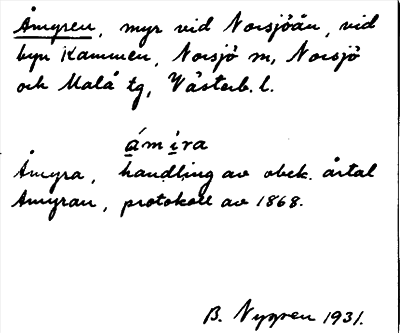 Åmyren, myr vid Norsjöån, vid
byn Kammen, Norsjö sn, Norsjö
och Malå tg, Västerb. l.
ámira
Åmyra, handling av obek. årtal
Åmyran, protokoll av 1868.
B. Nygren 1931.